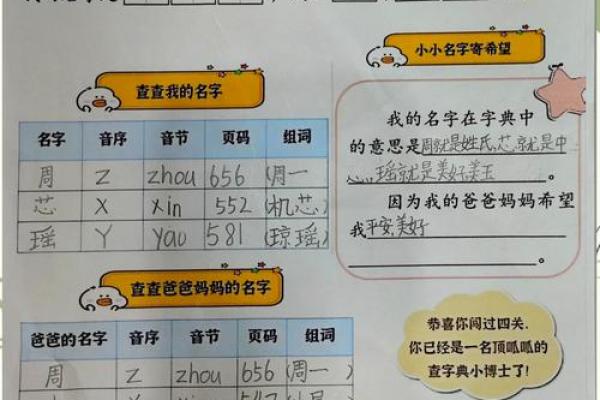 查查我的名字
名字 音序 音节 页码 组词
周 Z zhou 656 (周一
芯 X xin 552 (机芯)
瑶 Y yao 581 (琼瑶)
查查爸爸妈妈的名字
爸爸的名字 音序 音节 页码 组词
周 Z zhou 656 (周一 )
小小名字寄希望
我的名字在字典中
的意思是周就是姓氏,芯就是中
心,瑶就是美好,美玉 。
因为我的爸爸妈妈希望
我平安,美好
。
恭喜你闯过四关,
你已经是一名顶呱呱的
查字典小博士了!